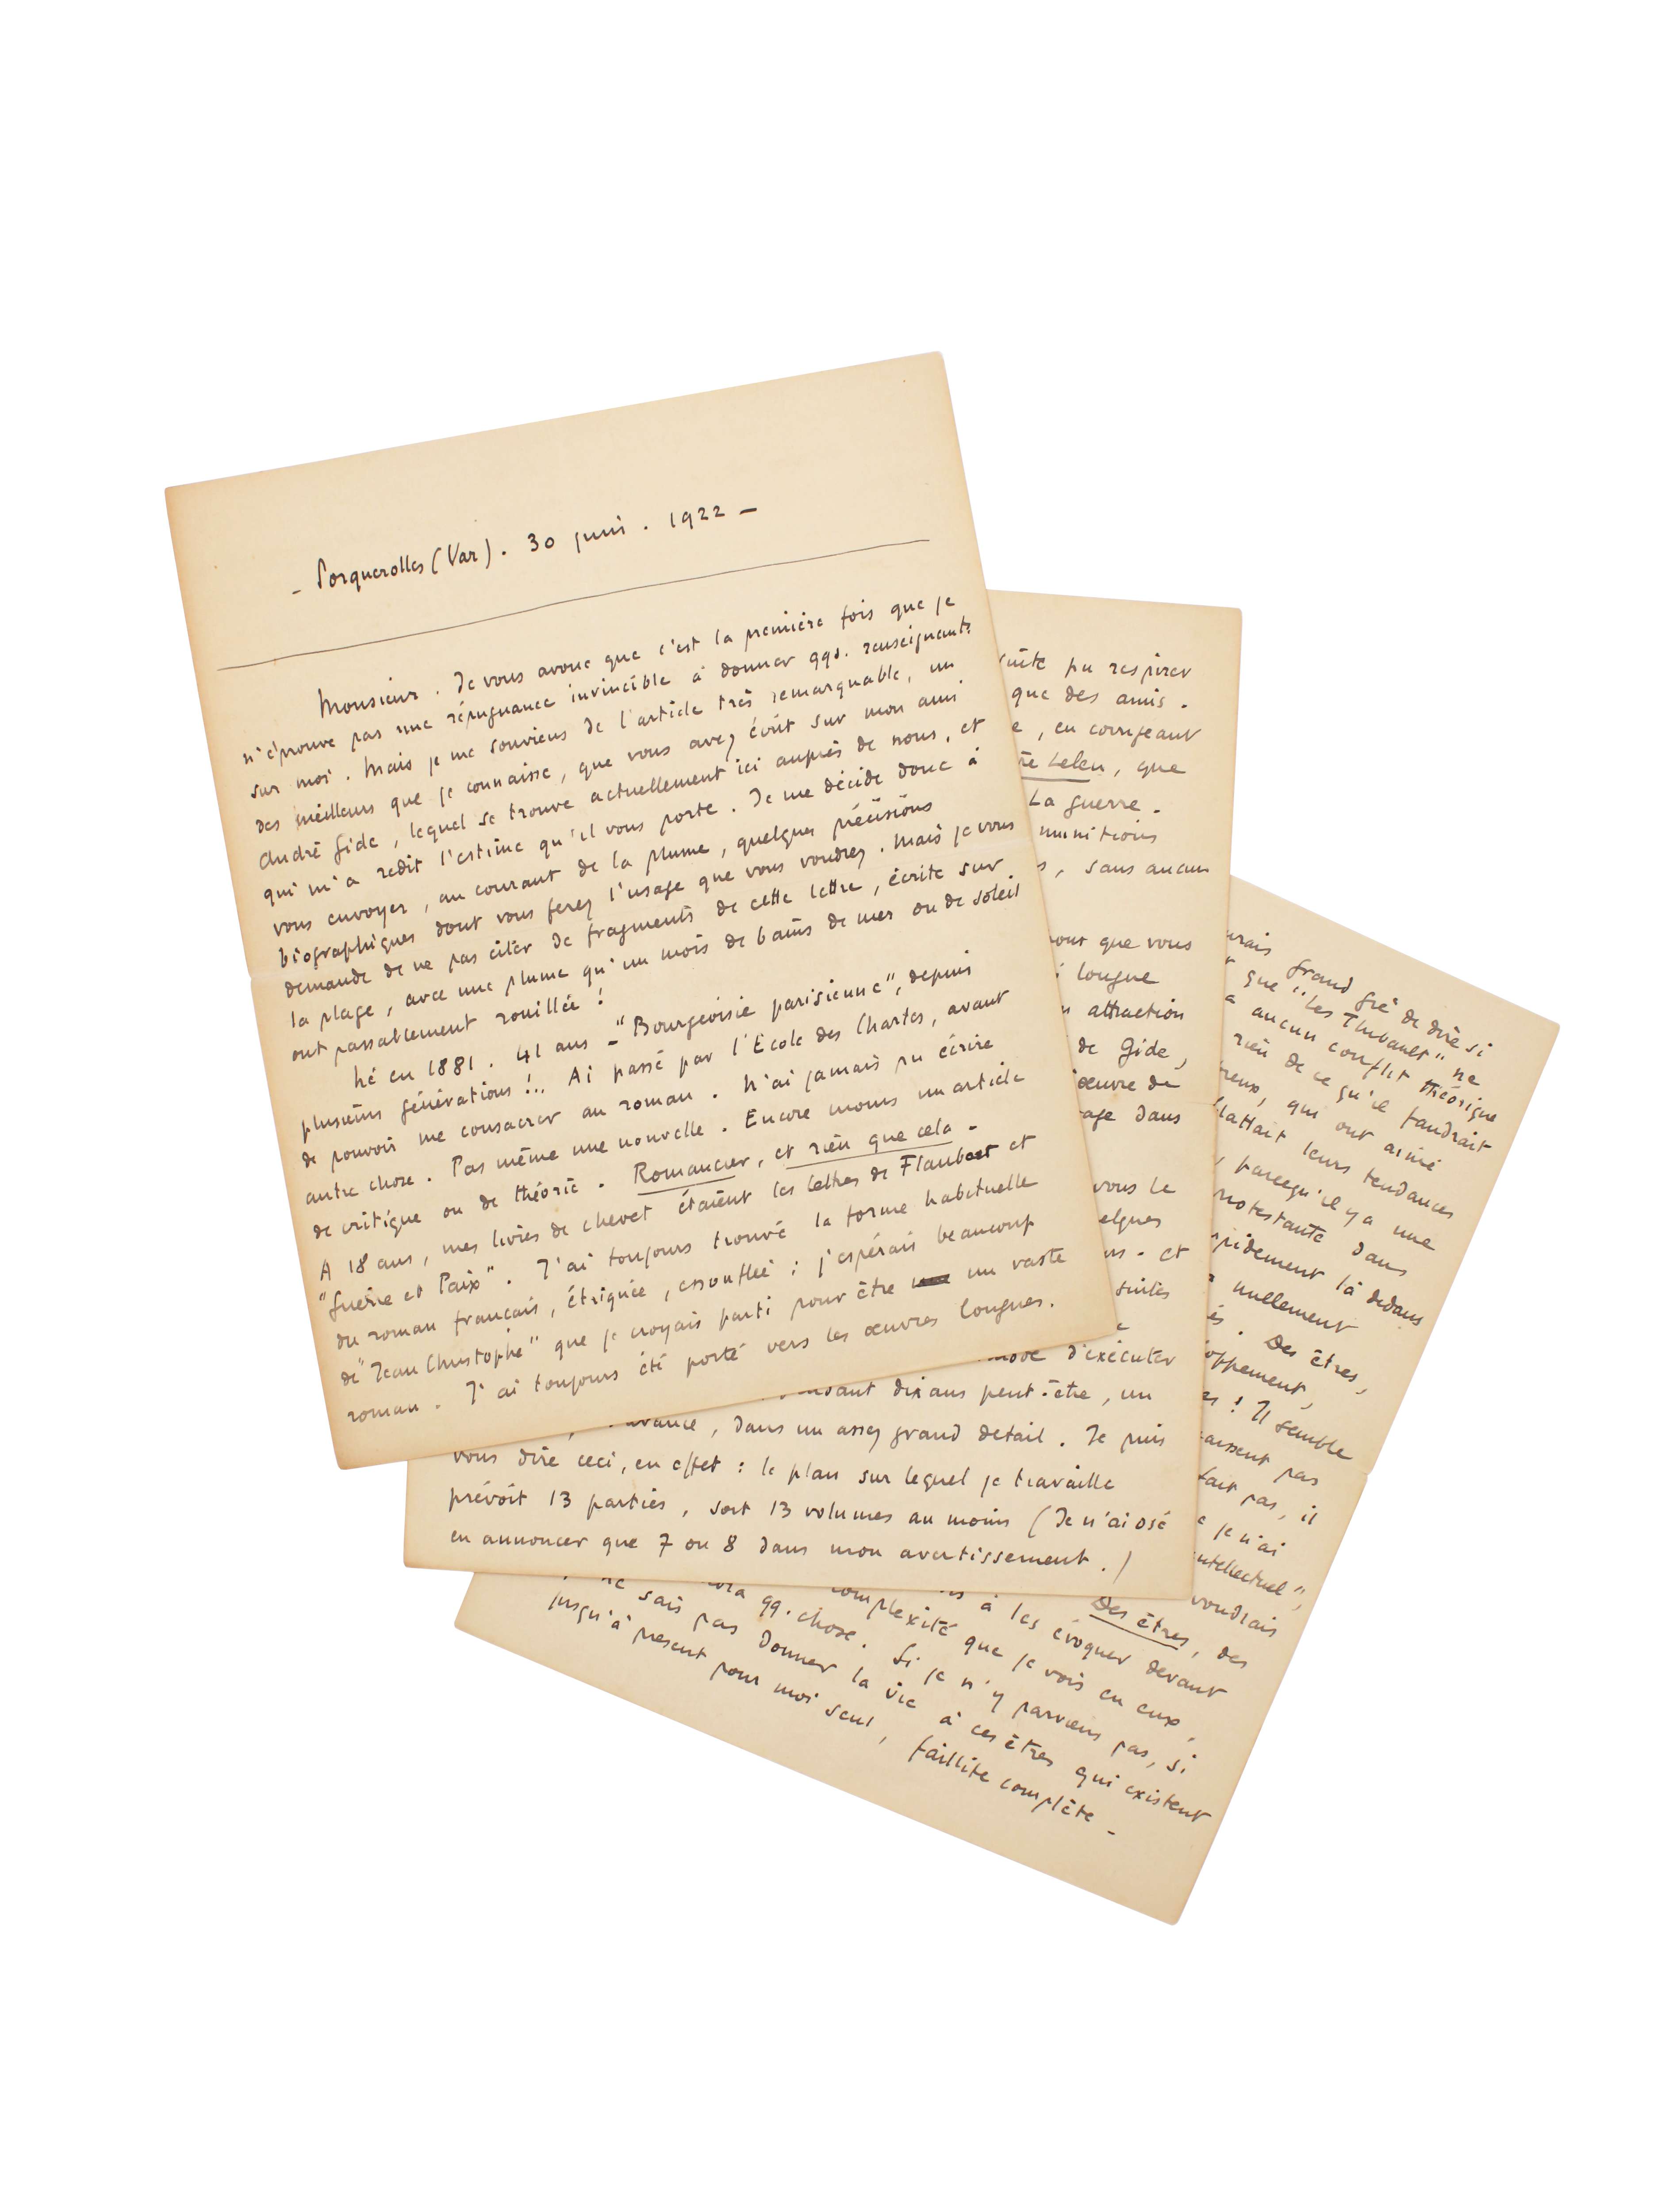 - Porquerolles (Var). 30 juin. 1922 -
Monsieur. Je vous avoue que c'est la première fois que je
n'éprouve pas une répugnance invincible à donner qqs. renseignents
sur moi. Mais je me souviens de l'article très remarquable, un
des meilleurs que je connaisse, que vous avez écrit sur mon ami
André Gide, lequel se trouve actuellement ici auprès de nous, et
qui m'a redit l'estime qu'il vous porte. Je me décide donc à
vous envoyer, au courant de la plume, quelques précisions
biographiques dont vous ferez l'usage que vous voudrez. Mais je vous
demande de ne pas citer de fragments de cette lettre, écrite sur
la plage, avec une plume qu'un mois de bains de mer ou de soleil
ont passablement rouillée !
Né en 1881. 41 ans - "Bourgeoisie parisienne", depuis
plusieurs générations !.. Ai passé par l'Ecole des Chartes, avant
de pouvoir me consacrer au roman. N'ai jamais pu écrire
autre chose. Pas même une nouvelle. Encore moins un article
de critique ou de théorie. Romancier, et rien que cela -
A 18 ans, mes livres de chevet étaient les lettres de Flaubert et
"Guerre et Paix". J'ai toujours trouvé la forme habituelle
du roman français, étriquée, essoufflée ; j'espérais beaucoup
de "Jean Christophe" que je croyais parti pour être un vaste
roman. J'ai toujours été porté vers les œuvres longues.
pu respirer
que des amis.
, en corrigeant
Leleu, que
La guerre.
munitions
, sans aucun
que vous
longue
attraction
de Gide,
œuvre de
dans
vous le
- et
d'exécuter
dix ans peut-être, un
, dans un assez grand détail. Je puis
vous dire ceci, en effet : le plan sur lequel je travaille
prévoit 13 parties, soit 13 volumes au moins (Je n'ai osé
en annoncer que 7 ou 8 dans mon avertissement.)
grand gré de dire si
que "Les Thibault" ne
aucun conflit théorique
rien de ce qu'il faudrait
, qui ont aimé
leurs tendances
parcequ'il y a une
dans
là dedans
nullement
Des êtres,
! Il semble
pas
pas, il
je n'ai
voudrais
Des êtres, des
à les évoquer devant
complexité que je vois en eux,
qq. chose. Si je n'y parviens pas, si
sais pas donner la vie à ces êtres qui existent
jusqu'à présent pour moi seul, faillite complète -